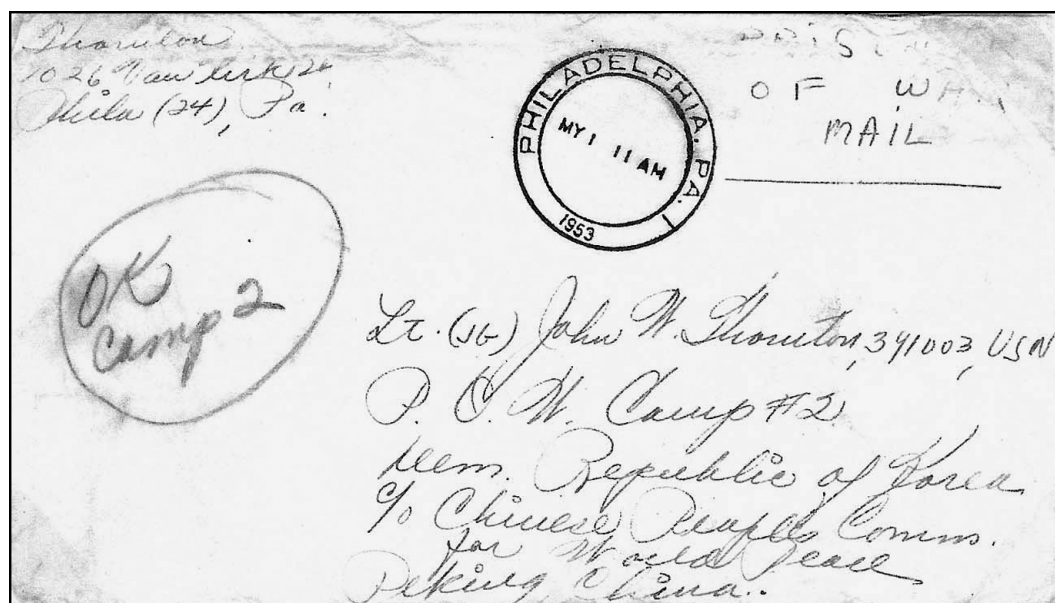 Thornton
1026 Van Kirk St.
Phila (24), Pa.
PHILADELPHIA, PA. 1
MY 1 11 AM
1953
PRISONER
OF WAR
MAIL
OK
Camp 2
Lt. (JG) John W. Thornton, 391003, USN
P. O. W. Camp #2
Dem. Republic of Korea
c/o Chinese Peoples Comm.
for World Peace
Peking, China..